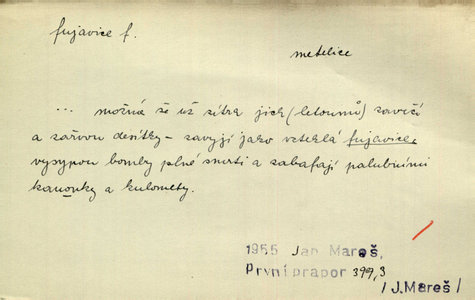 fujavice f.
metelice
... možná že už zítra jich (letounů) zavičí
a zařvou desítky – zavyjí jako vzteklá fujavice,
vysypou bomby plné smrti a zabafají palubními
kanonky a kulomety.
1955 Jan Mareš,
První prapor 399,3
/J.Mareš/